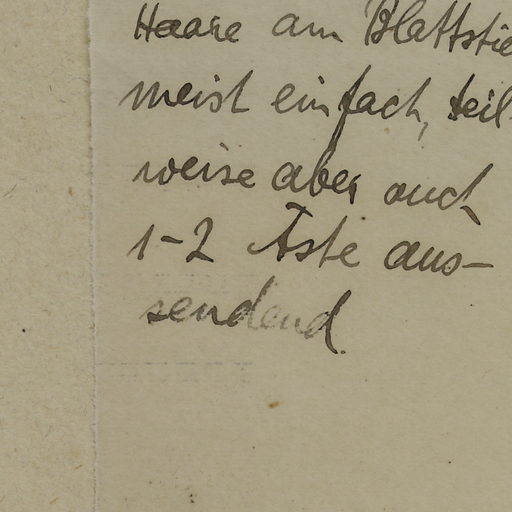 Haare am Blattstie
meist einfach, teil-
weise aber auch
1-2 Äste aus-
sendend.